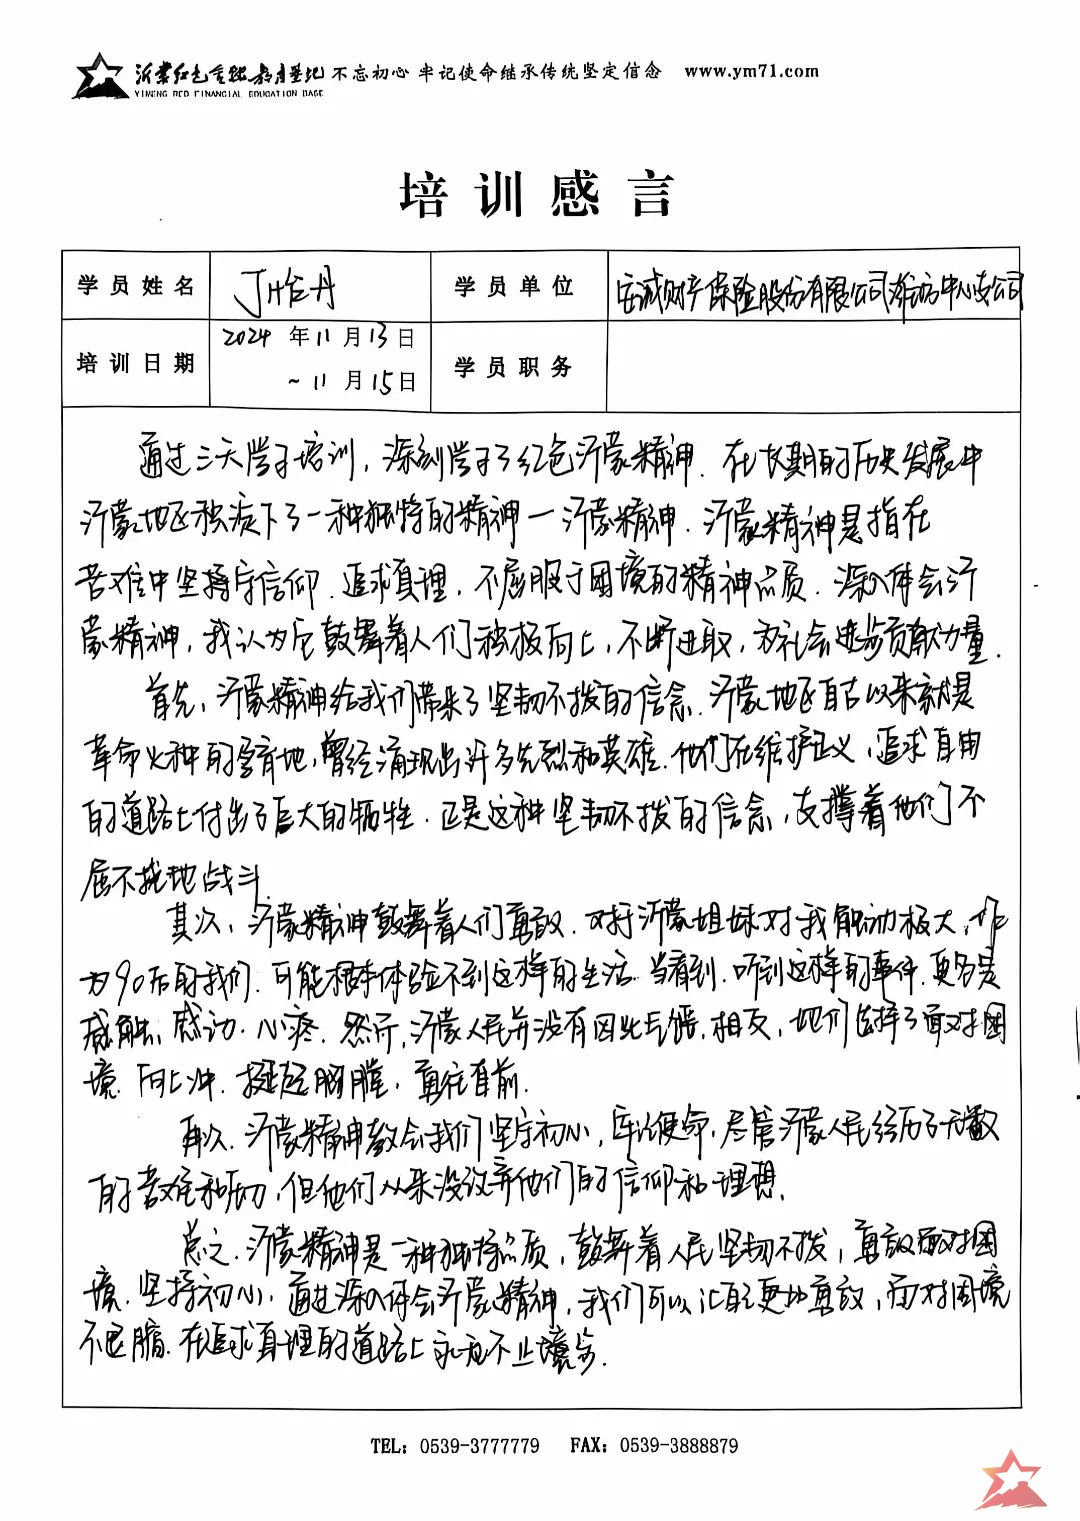 沂蒙红色金融教育基地 不忘初心 牢记使命继承传统坚定信念 www.ym71.com
YIMENG RED FINANCIAL EDUCATION BASE
培训感言
学员姓名 丁怡丹 学员单位 安诚财产保险股份有限公司潍坊中心支公司
培训日期 2024 年 11 月 13 日 ~ 11 月 15 日 学员职务
通过三天学习培训,深刻学习了红色沂蒙精神.在长期的历史发展中
沂蒙地区积淀下了一种独特的精神一沂蒙精神.沂蒙精神是指在
苦难中坚持守信仰.追求真理,不屈服于困境的精神品质.深入体会沂
蒙精神,我认为它鼓舞着人们积极向上,不断进取,为社会进步贡献力量.
首先,沂蒙精神给我们带来了坚韧不拨的信念.沂蒙地区自古以来就是
革命火种的孕育地,曾经涌现出许多先烈和英雄.他们在维护正义,追求自由
的道路上付出了巨大的牺牲.正是这种坚韧不拨的信念,支撑着他们不
屈不挠地战斗.
其次,沂蒙精神鼓舞着人们勇敢.对于沂蒙姐妹对我触动极大,作
为90后的我们.可能根本体验不到这样的生活.当看到.听到这样的事件.更多是
感触,感动.心疼.然而,沂蒙人民并没有因此气馁,相反,他们选择了面对困
境.向上冲.挺起胸膛,勇往直前.
再次.沂蒙精神教会我们坚守初心,牢记使命,尽管沂蒙人民经历了无数
的苦难和 ,但他们从来没放弃他们的信仰和理想.
总之.沂蒙精神是一种独特品质,鼓舞着人民坚韧不拨,勇敢面对困
境.坚持初心,通过深入体会沂蒙精神,我们可以 更加勇敢,面对困境
不退 .在追求真理的道路上永远不止 步.
TEL: 0539-3777779 FAX: 0539-3888879